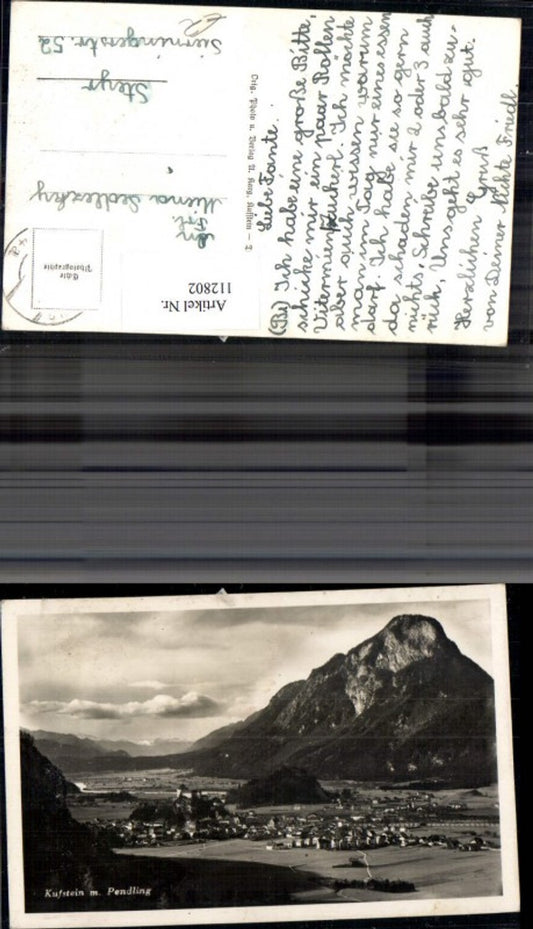 Liebe Tante.
(Bi) Ich habe eine große Bitte,
schicke mir ein paar Rollen
aber auch wissen warum
man im Tag nur eines essen
darf. Ich habe sie so gern
da schaden mir 2 oder 3 auch
nichts, Schreibe uns bald zu-
rück, Uns geht es sehr gut.
Herzlichen Gruß
von Deiner Nichte Friedl.
Orig.-Photo u. Verlag A. Karg, Kufstein
Echte
Photographie
An
Frl.
Sedlezky
Steyr
Sierningerstr. 52
Artikel Nr.
112802
Kufstein m. Pendling